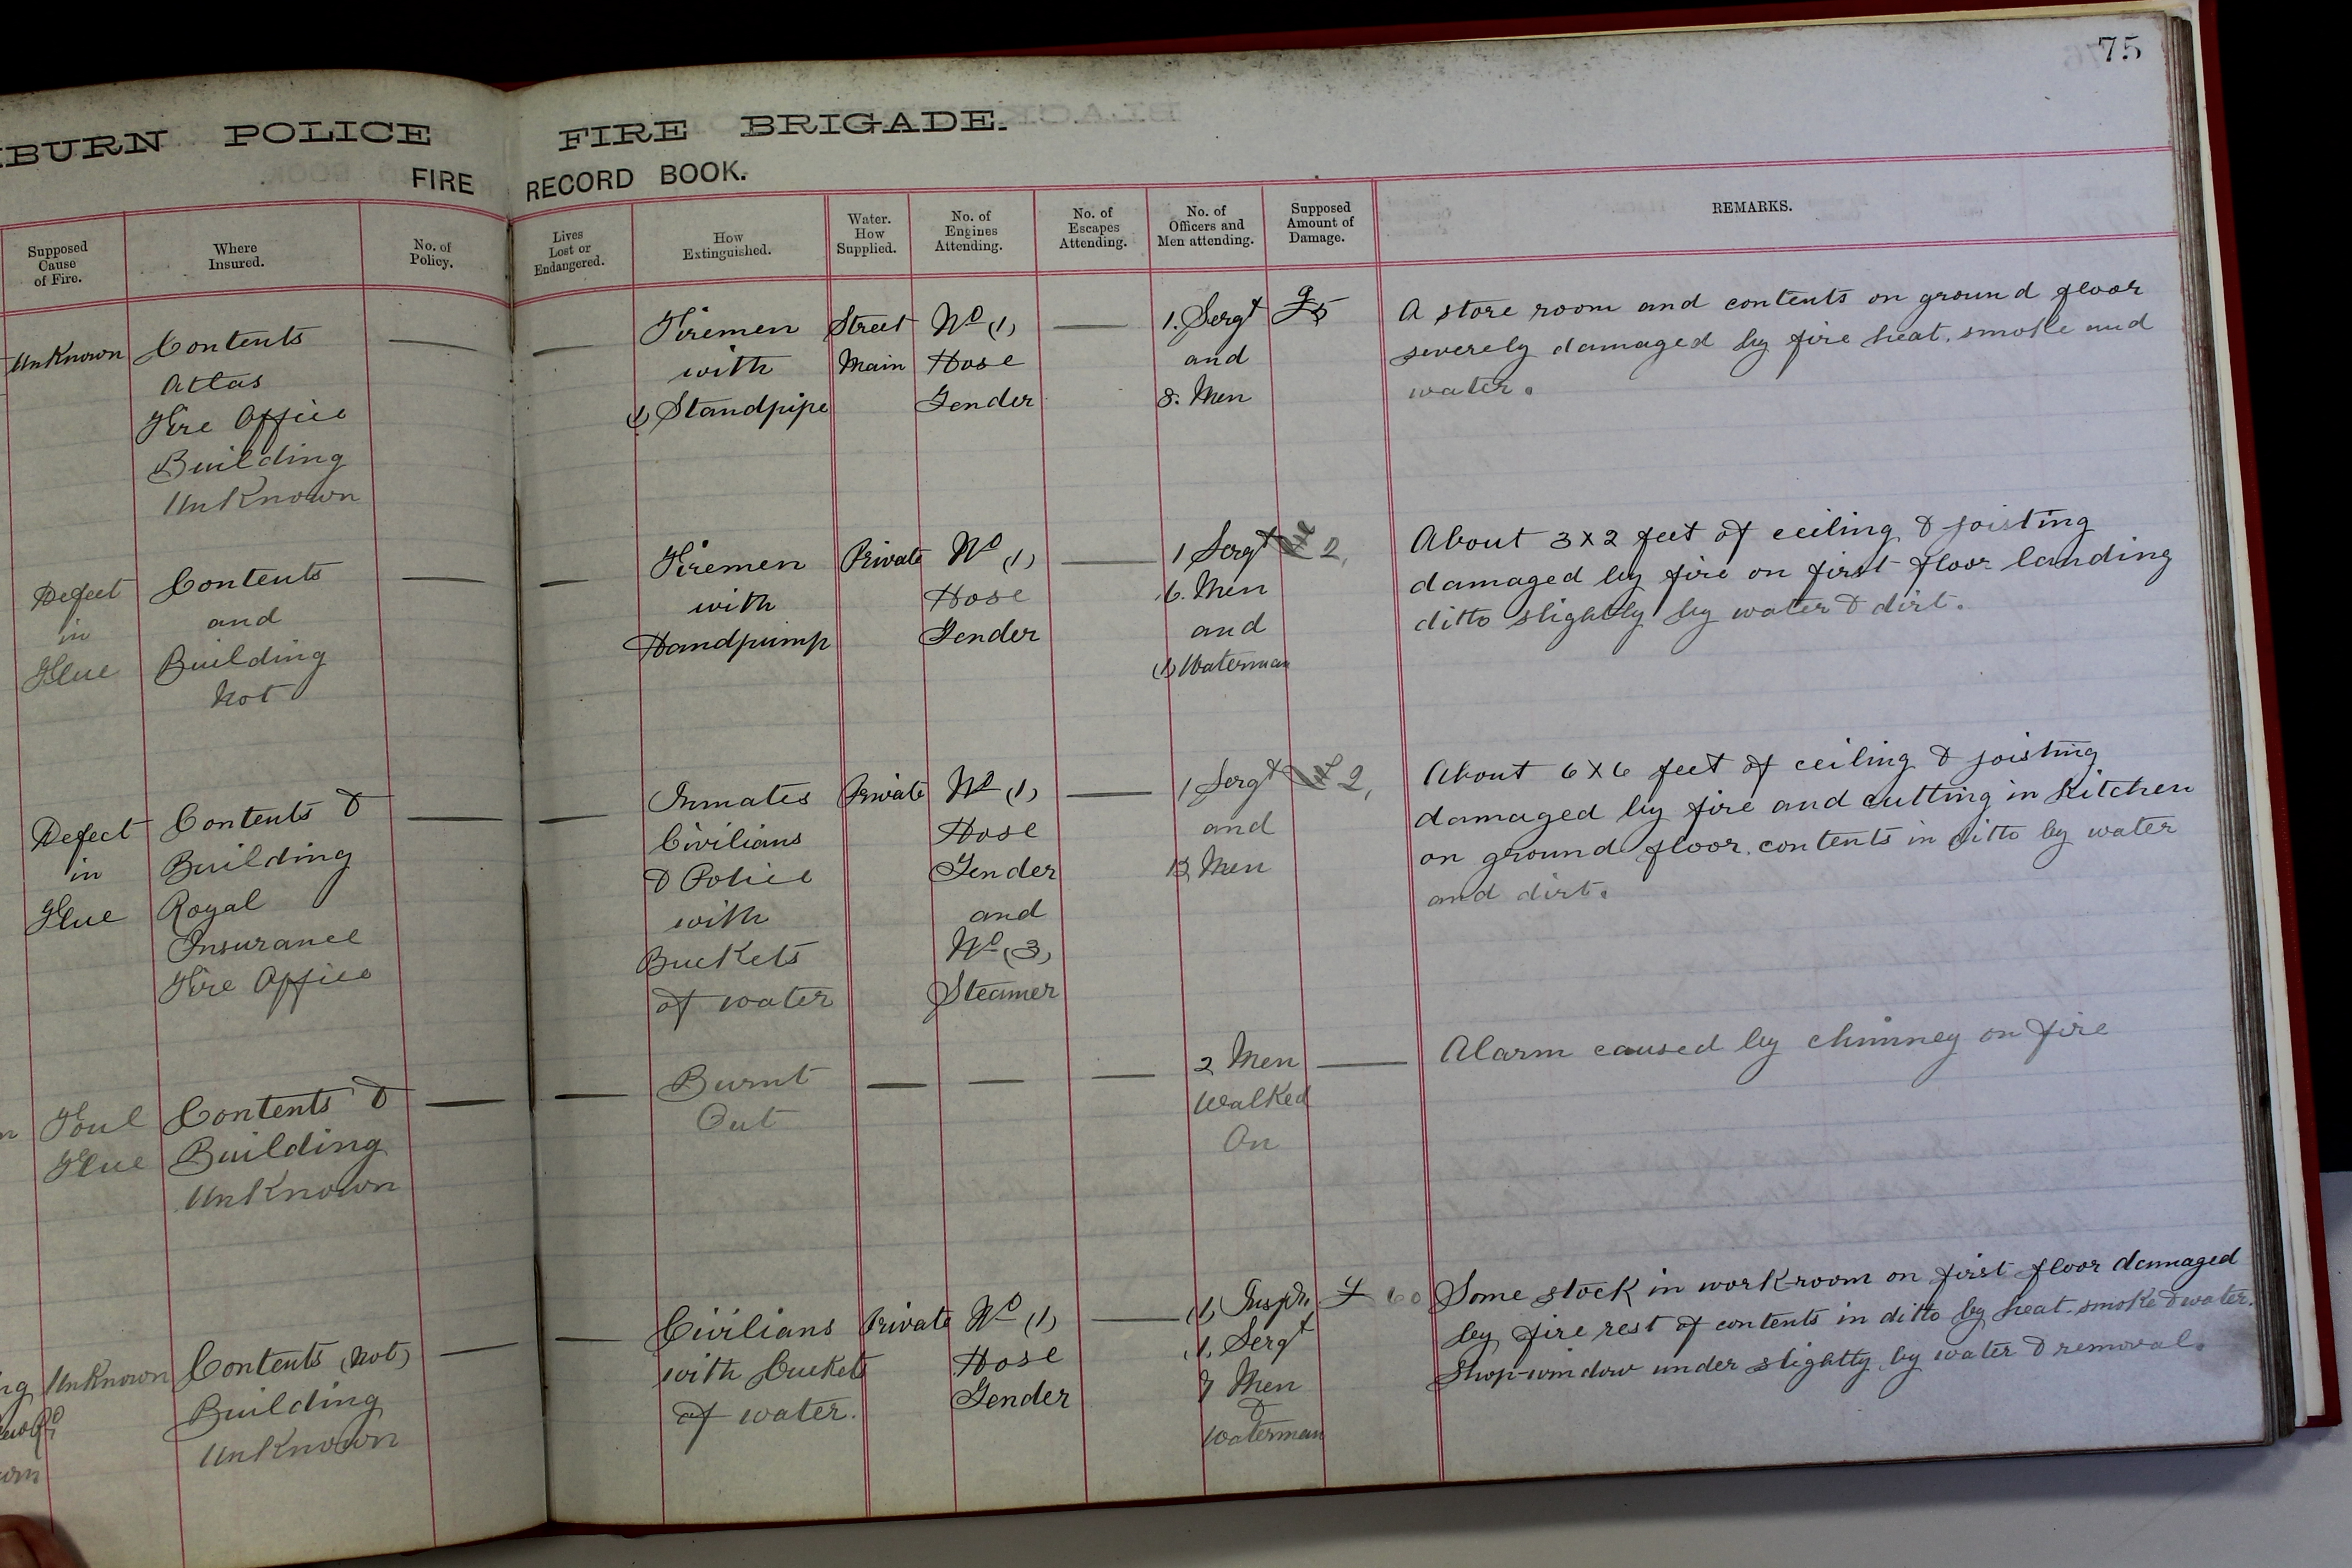 75
BURN POLICE FIRE BRIGADE.
FIRE RECORD BOOK.
Supposed Cause of Fire.
Where Insured.
No. of Policy.
Lives Lost or Endangered.
How Extinguished.
Water. How Supplied.
No. of Engines Attending.
No. of Escapes Attending.
No. of Officers and Men attending.
Supposed Amount of Damage.
REMARKS.
Unknown
Contents
Atlas
Fire Office
Building
Unknown
Firemen
with
(1) Standpipe
Street
Main
No (1)
Hose
Tender
1. Sergt
and
8. Men
A store room and contents on ground floor
severely damaged by fire heat. smoke and
water.
Defect
in
Flue
Contents
and
Building
not
Firemen
with
Handpump
Private
No (1)
Hose
Tender
1 Sergt
6. Men
and
(1) Waterman
2,
About 3x2 feet of ceiling & joisting
damaged by fire on first floor landing
ditto slightly by water & dirt.
Defect
in
Flue
Contents &
Building
Royal
Insurance
Fire Office
Inmates
Civilians
& Police
with
Buckets
of water
Private
No (1)
Hose
Tender
and
No (3)
Steamer
1 Sergt
and
Men
2,
About 6x6 feet of ceiling & joisting
damaged by fire and cutting in Kitchen
on ground floor. contents in ditto by water
and dirt.
Foul
Flue
Contents &
Building
Unknown
Burnt
Out
2 Men
Walked
On
Alarm caused by chimney on fire
Unknown
Contents (not)
Building
Unknown
Civilians
with buckets
of water.
Private
No (1)
Hose
Tender
(1) Inspr.
1. Sergt
7 Men
&
Waterman
£ 60
Some stock in work-room on first floor damaged
by fire rest of contents in ditto by heat-smoke & water.
Shop-window under slightly by water & removal.